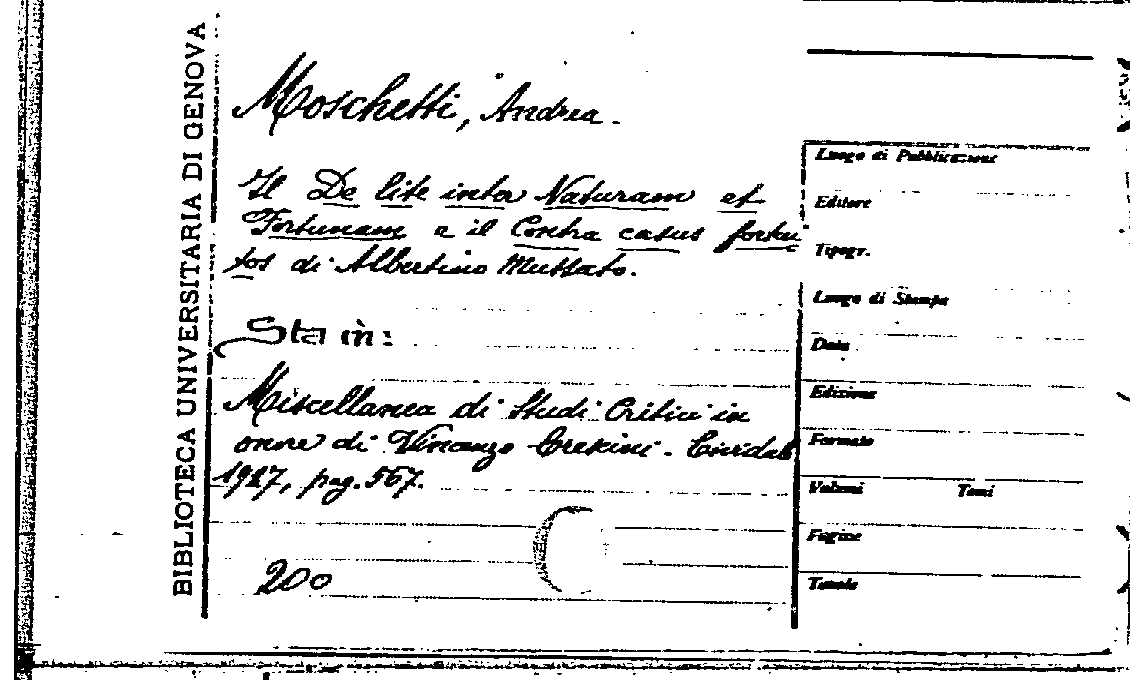 BIBLIOTECA UNIVERSITARIA DI GENOVA
Moschetti, Andrea.
Il De lite inter Naturam et
Fortunam e il Contra casus fortui
tos di Albertino Mussato.
Sta in:
Miscellanea di Studi Critici in
onore di Vincenzo Crescini. Cividale
1927, pag. 567.
200
Luogo di Pubblicazione
Editore
Tipogr.
Luogo di Stampa
Data
Edizione
Formato
Volumi Tomi
Pagine
Tavole